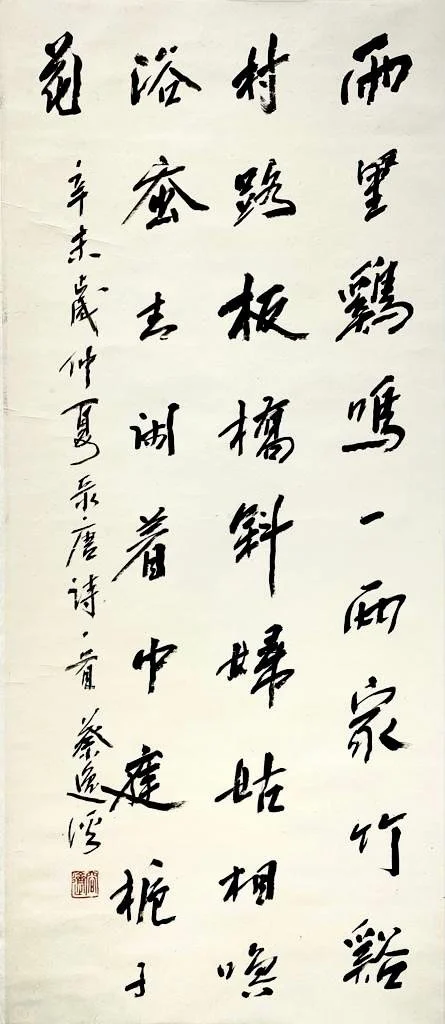 雨里鷄鳴一兩家竹谿
村路板橋斜婦姑相喚
浴蚕去閑着中庭栀子
花 辛未歲仲夏录唐詩一首 蔡逸溪